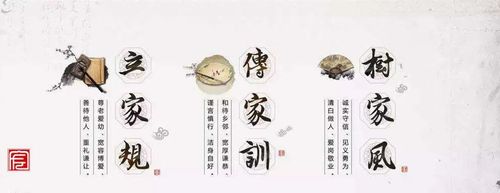 立家規
尊老爱幼、宽容博爱
善待他人、重礼谦让
傳家訓
和待乡邻、宽厚谦恭
谨言慎行、洁身自好
樹家風
诚实守信、见义勇为
清白做人、爱岗敬业